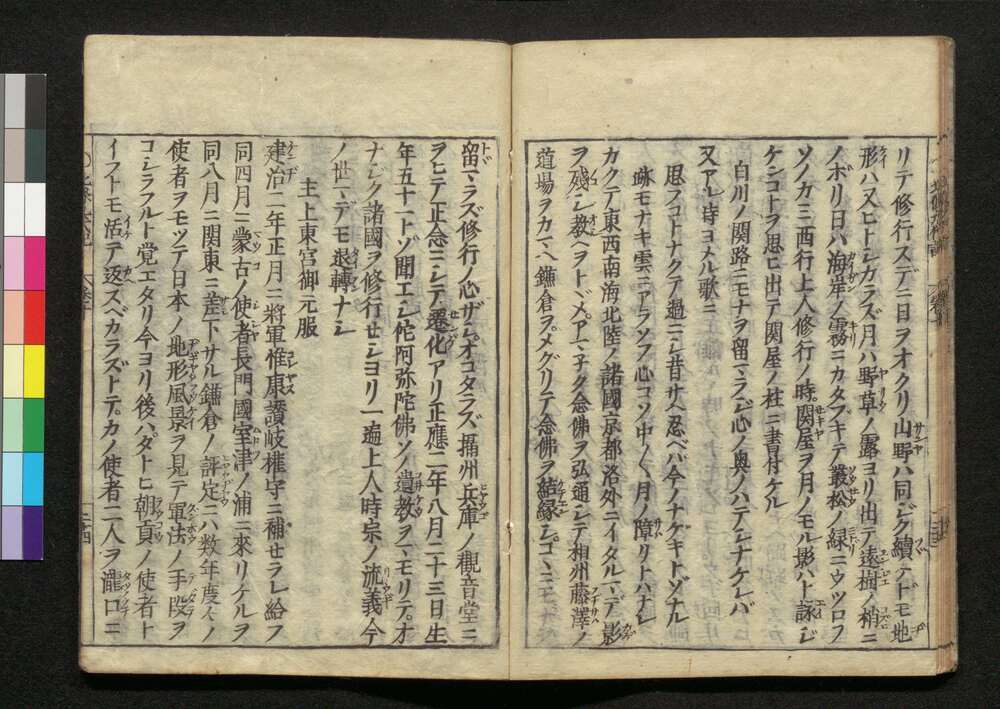 リテ修行スデニ日ヲオクリ山野ハ同ジク續ケドモ地
形ハ又ヒトシカラズ月ハ野草ノ露ヨリ出テ遠樹ノ梢ニ
ノボリ日ハ海岸ノ霧ニカタブキテ叢松ノ緑ニウツロフ
ソノカミ西行上人修行ノ時関屋ヲ月ノモル影ハト詠ジ
ケンコトヲ思ヒ出テ関屋ノ柱ニ書付ケル
白川ノ関路ニモナヲ留マラジ心ノ奥ノハテシナケレバ
又アル時ヨメル歌ニ
思フコトナクテ過ニシ昔サヘ忍べバ今ノナゲキトゾナル
跡モナキ雲ニアラソフ心コソ中〱月ノ障リトハナレ
カクテ東西南海北陸ノ諸國京都洛外ニイタルマデ影
ヲ残シ教ヘヲトドメアマ子ク念佛ヲ弘通シテ相州藤澤ノ
道場ヲカマヘ鎌倉ヲメグリテ念佛ヲ結縁シコヽニモ
留マラズ修行ノ心ザシオコタラズ攝州兵庫ノ觀音堂ニ
ヲヒテ正念ニシテ遷化アリ正應二年八月二十三日生
年五十一トゾ聞エシ陀阿弥陀佛ソノ遺教ヲマモリテオ
ナジク諸國ヲ修行セシヨリ一遍上人時宗ノ流義今
ノ世マデモ退轉ナシ
主上東宮御元服
建治二年正月ニ將軍惟康讃岐權守ニ補セラレ給フ
同四月ニ蒙古ノ使者長門國室津ノ浦ニ來リケルヲ
同八月ニ関東ニ差下サル鎌倉ノ評定ニハ数年度々ノ
使者ヲモツテ日本ノ地形風景ヲ見テ軍法ノ手段ヲ
コシラフルト覚エタリ今ヨリ後ハタトヒ朝貢ノ使者ト
イフトモ活テ返スベカラズトテカノ使者二人ヲ瀧口ニ